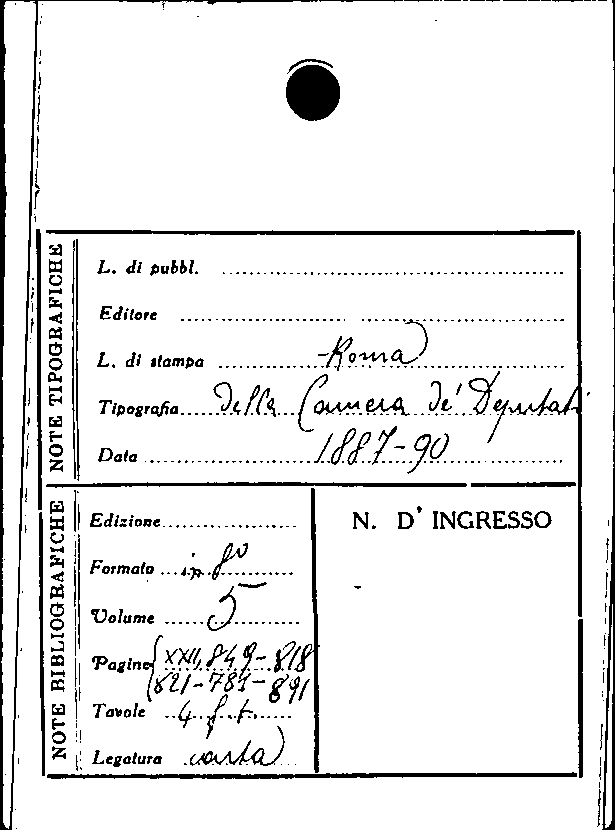 NOTE TIPOGRAFICHE
L. di pubbl.
Editore
L. di stampa Roma
Tipografia della Camera de' Deputati
Data 1887-90
NOTE BIBLIOGRAFICHE
Edizione
Formato in 8º
Volume 5
Pagine XXII, 849 - 818
821 - 781 - 891
Tavole 4 f. t.
Legatura carta
N. D' INGRESSO